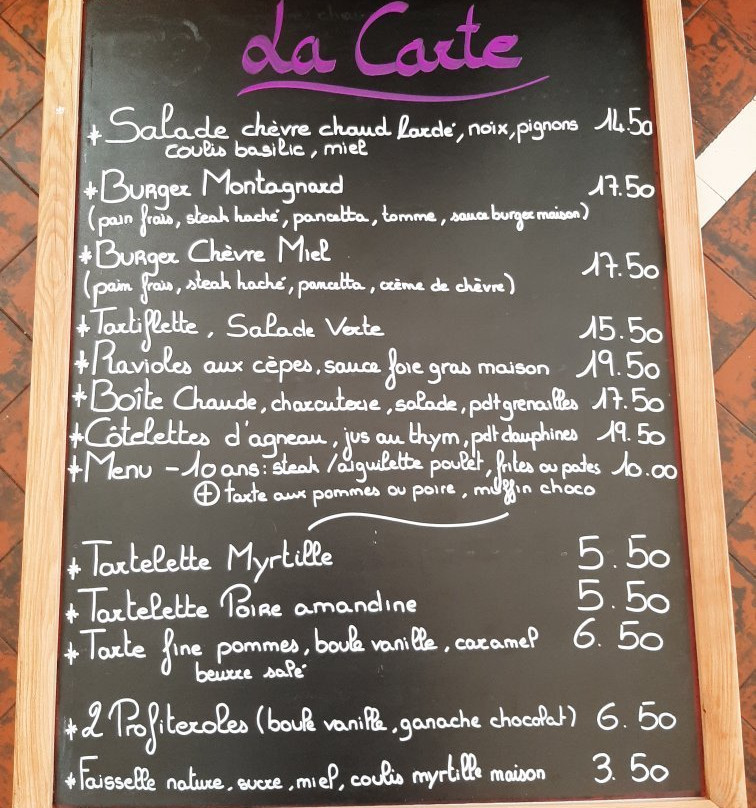 La Carte
* Salade chèvre chaud lardé, noix, pignons 14.50
coulis basilic, miel
* Burger Montagnard 17.50
(pain frais, steak haché, pancetta, tomme, sauce burger maison)
* Burger Chèvre Miel 17.50
(pain frais, steak haché, pancetta, crème de chèvre)
* Tartiflette, Salade Verte 15.50
* Ravioles aux cèpes, sauce foie gras maison 19.50
* Boîte Chaude, charcuterie, salade, pdt grenailles 17.50
* Côtelettes d'agneau, jus au thym, pdt dauphines 19.50
* Menu -10 ans: steak / aiguilette poulet, frites ou pates 10.00
⊕ tarte aux pommes ou poire, muffin choco
* Tartelette Myrtille 5.50
* Tartelette Poire amandine 5.50
* Tarte fine pommes, boule vanille, caramel 6.50
beurre salé
* 2 Profiteroles (boule vanille, ganache chocolat) 6.50
* Faisselle nature, sucre, miel, coulis myrtille maison 3.50